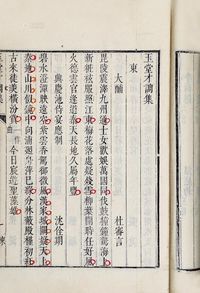 玉堂才調集
東
大酺 杜審言
毘陵震澤九州通士女歡娛萬國同伐鼓撞鐘驚海上
新妝袨服照江東梅花落處疑殘雪柳葉開時任好風
火德雲官逢道泰天長地久屬年豐
興慶池侍宴應制 沈佺期
碧水澄潭映遠空紫雲香駕御微風漢家城闕疑天上
秦地山川似鏡中向浦迴舟萍已綠分林蔽殿槿初紅
古來徒美橫汾賞今日宸遊聖藻雄